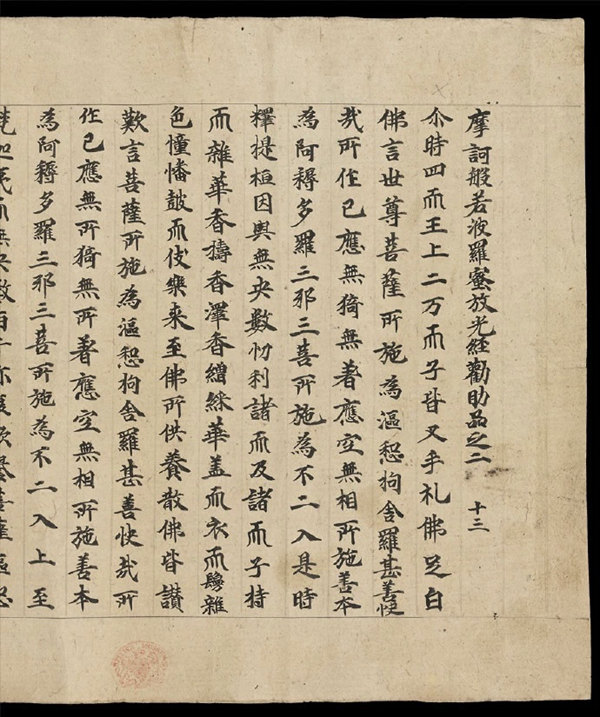 摩訶般若波羅蜜放光經勸助品之二 十三
尒時四天王上二万天子皆叉手礼佛足白
佛言世尊菩薩所施為漚惒拘舍羅甚善快
哉所作已應無猗無著應空無相所施善本
為阿耨多羅三耶三菩所施為不二入是時
釋提桓因與無央數忉利諸天及諸天子持
天雜華香擣香澤香繒綵華蓋天衣天鬘雜
色幢幡鼓天伎樂來至佛所供養散佛皆讚
歎言菩薩所施為漚惒拘舍羅甚善快哉所
作已應無所猗無所著應空無相所施善本
為阿耨多羅三耶三菩所施為不二入上至
梵迦夷天無央數百千亦復歎譽菩薩漚惒